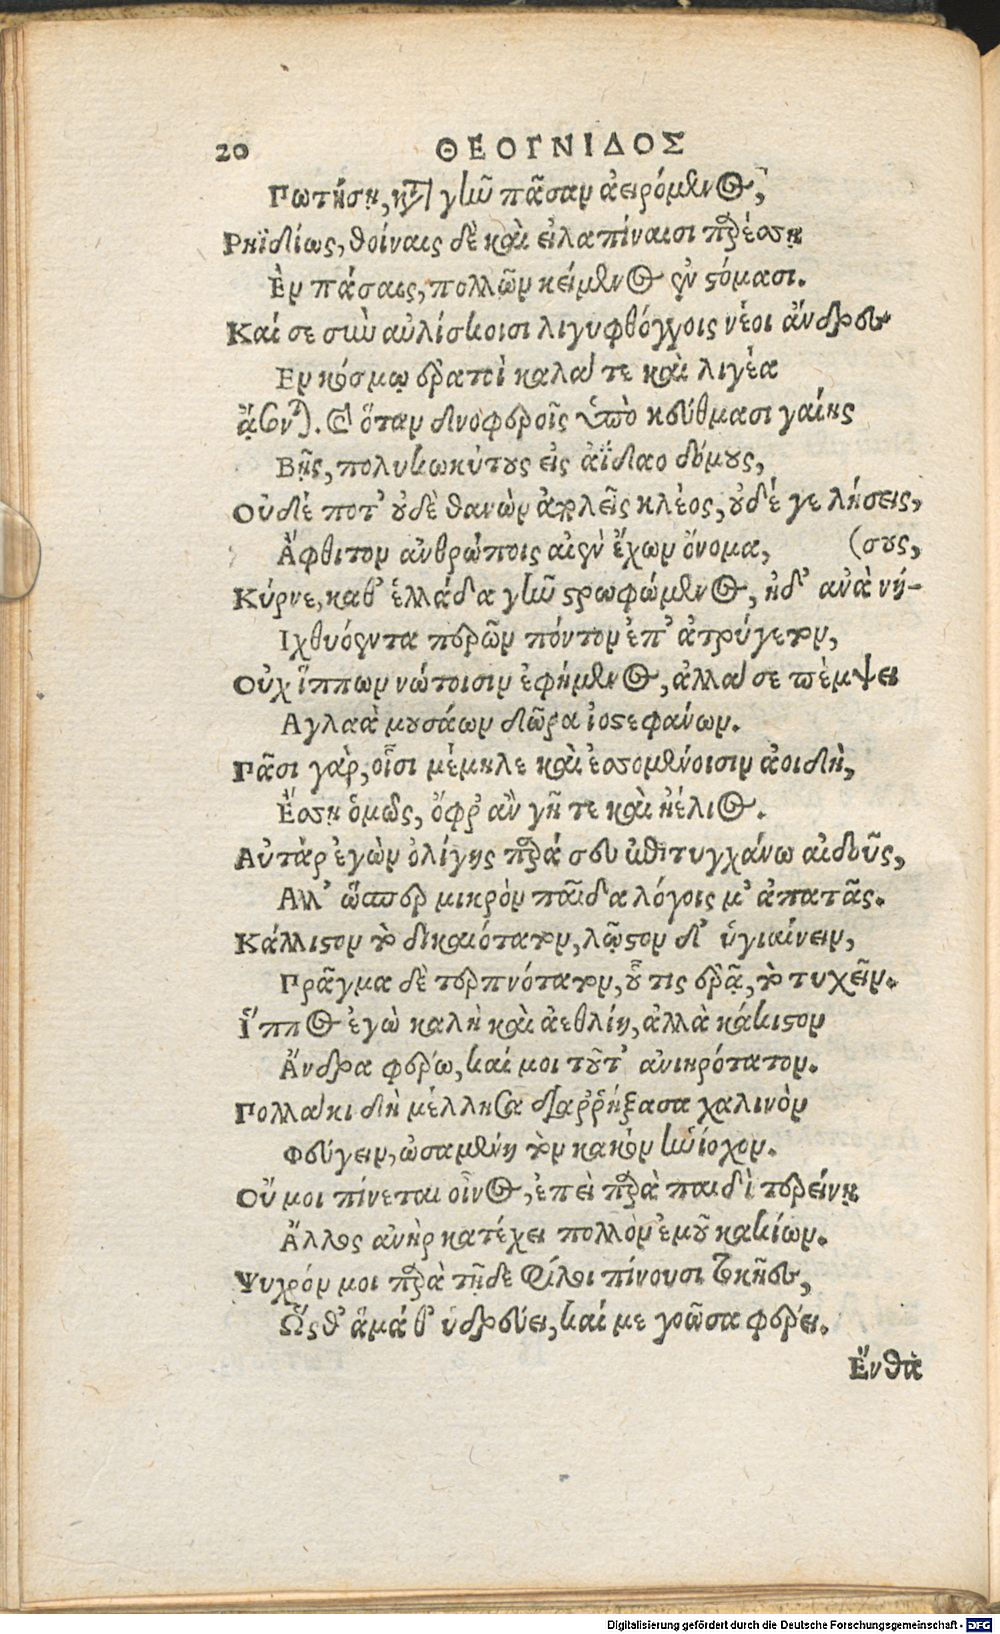 20 ΘΕΟΓΝΙΔΟΣ
Πωτήσῃ, κατὰ γῆν πᾶσαν ἀειρόμενος,
Ρηϊδίως, θοίναις δὲ καὶ εἰλαπίναισι παρέσσῃ
Ἐν πάσαις, πολλῶν κείμενος ἐν στόμασι.
Καί σε σὺν αὐλίσκοισι λιγυφθόγγοις νέοι ἄνδρες
Εν κόσμῳ ἐρατοὶ καλά τε καὶ λιγέα
ᾄσονται. καὶ ὅταν δνοφεροῖς ὑπὸ κεύθμασι γαίης
Βῇς, πολυκωκύτους εἰς ἀΐδαο δόμους,
Οὐδέ ποτ' οὐδὲ θανὼν ἀπολεῖς κλέος, οὐδέ γε λήσεις,
Ἄφθιτον ἀνθρώποις αἰὲν ἔχων ὄνομα, (σους,
Κύρνε, καθ' ἑλλάδα γῆν στρωφώμενος, ἠδ' ἀνὰ νή-
Ιχθυόεντα περῶν πόντον ἐπ' ἀτρύγετον,
Οὐχ ἵππων νώτοισιν ἐφήμενος, ἀλλά σε πέμψει
Αγλαὰ μουσάων δῶρα ἰοστεφάνων.
Πᾶσι γὰρ, οἷσι μέμηλε καὶ ἐσσομένοισιν ἀοιδὴ,
Ἔσσῃ ὁμῶς, ὄφρ' ἂν γῆ τε καὶ ἠέλιος.
Αὐτὰρ ἐγὼν ὀλίγης παρά σευ οὐ τυγχάνω αἰδοῦς,
Αλλ' ὥσπερ μικρὸν παῖδα λόγοις μ' ἀπατᾷς.
Κάλλιστον τὸ δικαιότατον, λῷστον δ' ὑγιαίνειν,
Πρᾶγμα δὲ τερπνότατον, οὗ τις ἐρᾷ, τὸ τυχεῖν.
Ἵππος ἐγὼ καλὴ καὶ ἀεθλίη, ἀλλὰ κάκιστον
Ἄνδρα φέρω, καί μοι τοῦτ' ἀνιηρότατον.
Πολλάκι δὴ μέλλησα διαῤῥήξασα χαλινὸν
Φεύγειν, ὠσαμένη τὸν κακὸν ἡνίοχον.
Οὔ μοι πίνεται οἶνος, ἐπεὶ παρὰ παιδὶ τερείνῃ
Ἄλλος ἀνὴρ κατέχει πολλὸν ἐμοῦ κακίων.
Ψυχρόν μοι παρὰ τῇδε φίλοι πίνουσι τοκῆες,
Ὥς θ' ἅμα θ' ὑδρεύει, καί με γοῶσα φέρει.
Ἔνθα
Digitalisierung gefördert durch die Deutsche Forschungsgemeinschaft - DFG